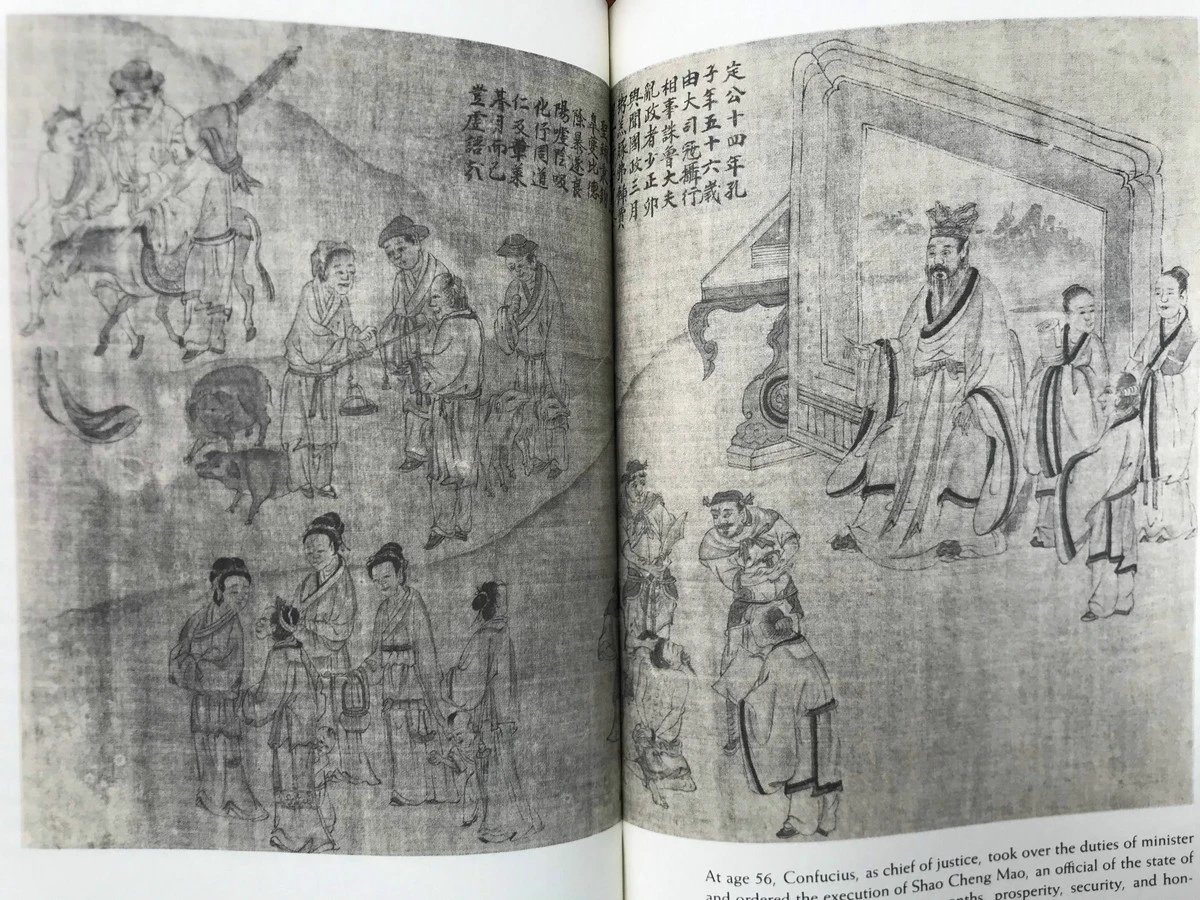 定公十四年孔
子年五十六歲
由大司寇攝行
相事誅魯大夫
亂政者少正卯
與聞國政三月
羔豚弗飾
比德
除暴遂良
陽噓陰吸
化行周道
仁及
朞月而已
豈虛語
At age 56, Confucius, as chief of justice, took over the duties of minister
and ordered the execution of Shao Cheng Mao, an official of the state of
prosperity, security, and hon-